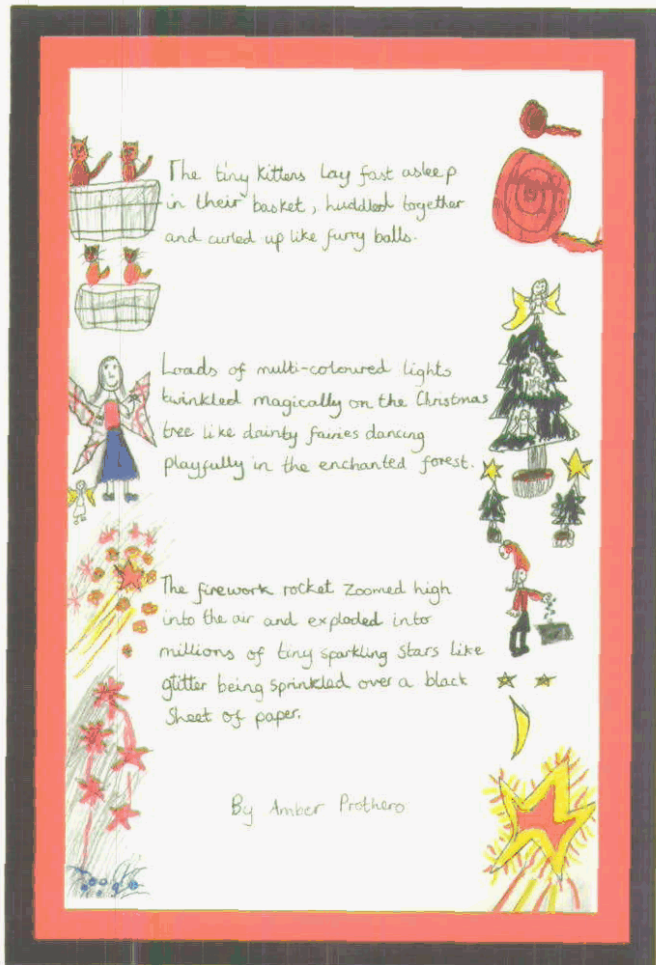 The tiny kittens lay fast asleep
in their basket, huddled together
and curled up like furry balls.
Loads of multi-coloured lights
twinkled magically on the Christmas
tree like dainty fairies dancing
playfully in the enchanted forest.
The firework rocket zoomed high
into the air and exploded into
millions of tiny sparkling stars like
glitter being sprinkled over a black
sheet of paper.
By Amber Prothero